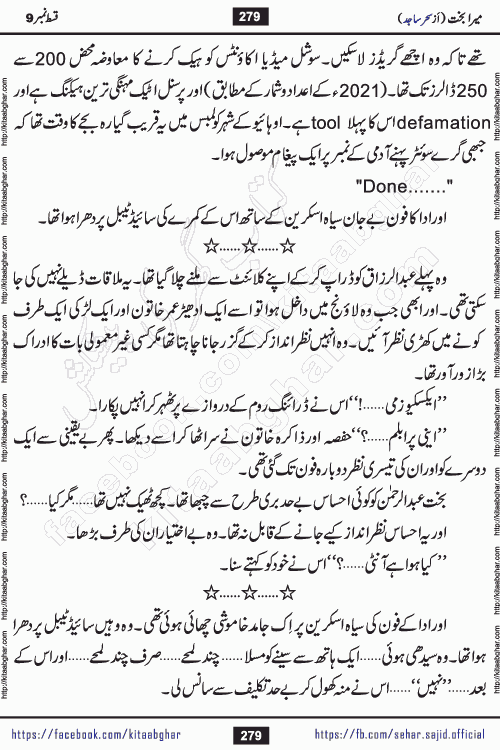 میرا بخت (از سحر ساجد) 279 قسط نمبر 9
تھے تاکہ وہ اچھے گریڈز لاسکیں۔ سوشل میڈیا اکاؤنٹس کو ہیک کرنے کا معاوضہ محض 200 سے
250 ڈالرز تک تھا۔ (2021ء کے اعداد و شمار کے مطابق) اور پرسنل اٹیک مہنگی ترین ہیکنگ ہے اور
defamation اس کا پہلا tool ہے۔ اوہائیو کے شہر کولمبس میں یہ قریب گیارہ بجے کا وقت تھا کہ
جبھی گرے سوئٹر پہنے آدمی کے نمبر پر ایک پیغام موصول ہوا۔
"Done.......“
اور ادا کا فون بے جان سیاہ اسکرین کے ساتھ اس کے کمرے کی سائیڈ ٹیبل پر دھرا ہوا تھا۔
☆......☆......☆
وہ پہلے عبدالرزاق کو ڈراپ کر کے اپنے کلائنٹ سے ملنے چلا گیا تھا۔ یہ ملاقات ڈیلے نہیں کی جا
سکتی تھی۔ اور ابھی جب وہ لاؤنج میں داخل ہوا تو اسے ایک ادھیڑ عمر خاتون اور ایک لڑکی ایک طرف
کونے میں کھڑی نظر آئیں۔ وہ انہیں نظر انداز کر کے گزر جانا چاہتا تھا مگر کسی غیر معمولی بات کا ادراک
بڑا زور آور تھا۔
”ایکسکیوزمی......!“ اس نے ڈرائنگ روم کے دروازے پر ٹھہر کر انہیں پکارا۔
”اینی پرابلم......؟“ حفصہ اور ذاکرہ خاتون نے سر اٹھا کر اسے دیکھا۔ پھر بے یقینی سے ایک
دوسرے کو اور ان کی تیسری نظر دوبارہ فون تک گئی تھی۔
بخت عبدالرحمٰن کو کوئی احساس بے حد بری طرح سے چبھا تھا۔ کچھ ٹھیک نہیں تھا......مگر کیا......؟
اور یہ احساس نظر انداز کیے جانے کے قابل نہ تھا۔ وہ بے اختیار ان کی طرف بڑھا۔
”کیا ہوا ہے آنٹی......؟“ اس نے خود کو کہتے سنا۔
☆......☆......☆
اور ادا کے فون کی سیاہ اسکرین پر اِک جامد خاموشی چھائی ہوئی تھی۔ وہ وہیں سائیڈ ٹیبل پر دھرا
ہوا تھا۔ وہ سیدھی ہوئی......ایک ہاتھ سے سینے کو مسلا......چند لمحے......صرف چند لمحے......اور اس کے
بعد......”نہیں“......اس نے منہ کھول کر بے حد تکلیف سے سانس لی۔
https://facebook.com/kitaabghar 279 https://fb.com/sehar.sajid.official
http://kitaabghar.com
facebook.com/kitaabghar
kitaabghar.com